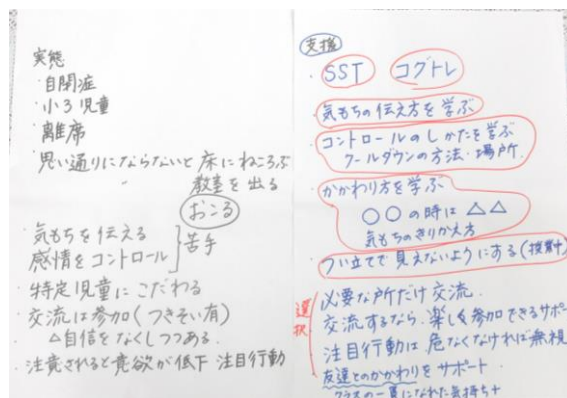 実態
・自閉症
・小3児童
・離席
・思い通りにならないと床にねころぶ
〃 教室を出る
おこる
・気もちを伝える
感情をコントロール
苦手
・特定児童にこだわる
・交流は参加(つきそい有)
△自信をなくしつつある
・注意されると意欲が低下 注目行動
支援
・SST コグトレ
・気もちの伝え方を学ぶ
・コントロールのしかたを学ぶ
クールダウンの方法・場所
・かかわり方を学ぶ
○○の時は△△
気もちのきりかえ方
・つい立てで見えないようにする(授業中)
選択
必要な所だけ交流
交流するなら、楽しく参加できるサポ
注目行動は危なくなければ無視
友達とのかかわりをサポート
クラスの一員になれた気持ち+